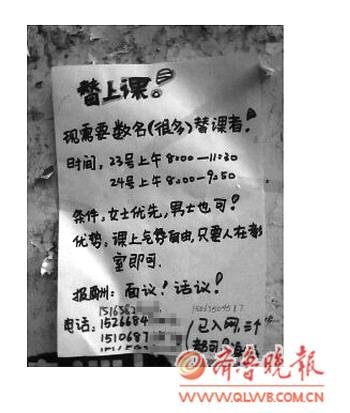 替上课!
现需要数名(很多)替课者!
时间: 23号上午8:00—11:30
24号上午8:00—9:50
条件: 女士优先, 男士也可!
优势: 课上自由, 只要人在教
室即可.
报酬: 面议! 话议!
1516582
电话: 1526684
1510687
(已入网, 三个
都可
齐鲁晚报
WWW.QLWB.COM.CN